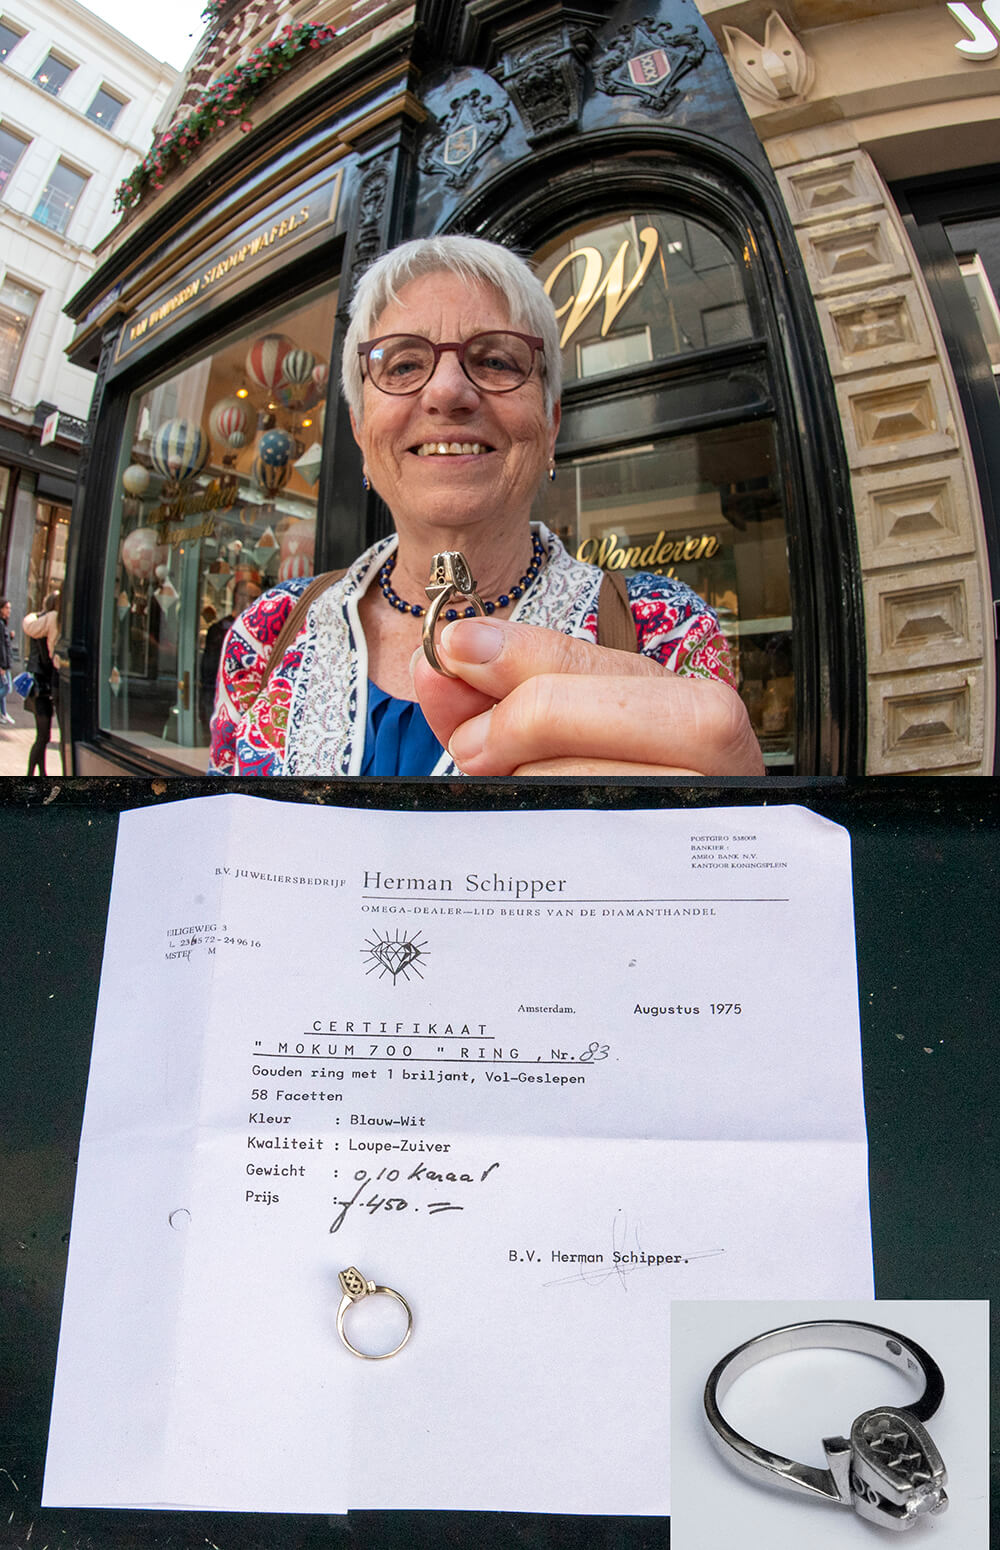 XXX
J
VAN WONDEREN STROOPWAFELS
W
Wonderen
Wonderen
POSTGIRO 538008
BANKIER :
AMRO BANK N.V.
KANTOOR KONINGSPLEIN
B.V. JUWELIERSBEDRIJF Herman Schipper
OMEGA-DEALER—LID BEURS VAN DE DIAMANTHANDEL
EILIGEWEG 3
72 - 24 96 16
MSTE M
Amsterdam, Augustus 1975
CERTIFIKAAT
" MOKUM 700 " RING , Nr. 83.
Gouden ring met 1 briljant, Vol-Geslepen
58 Facetten
Kleur : Blauw-Wit
Kwaliteit : Loupe-Zuiver
Gewicht : 0,10 karaat
Prijs : f 450.=
B.V. Herman Schipper.
XXX